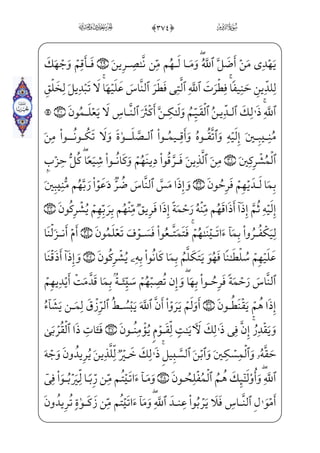 ﴿٣٧٤﴾
يَهْدِى مَنْ أَضَلَّ ٱللَّهُ ۖ وَمَا لَهُم مِّن نَّـٰصِرِينَ فَأَقِمْ وَجْهَكَ
لِلدِّينِ حَنِيفًا ۚ فِطْرَتَ ٱللَّهِ ٱلَّتِى فَطَرَ ٱلنَّاسَ عَلَيْهَا ۚ لَا تَبْدِيلَ لِخَلْقِ
ٱللَّهِ ۚ ذَٰلِكَ ٱلدِّينُ ٱلْقَيِّمُ وَلَـٰكِنَّ أَكْثَرَ ٱلنَّاسِ لَا يَعْلَمُونَ
مُنِيبِينَ إِلَيْهِ وَٱتَّقُوهُ وَأَقِيمُوا۟ ٱلصَّلَوٰةَ وَلَا تَكُونُوا۟ مِنَ
ٱلْمُشْرِكِينَ مِنَ ٱلَّذِينَ فَرَّقُوا۟ دِينَهُمْ وَكَانُوا۟ شِيَعًا ۖ كُلُّ حِزْبٍۭ
بِمَا لَدَيْهِمْ فَرِحُونَ وَإِذَا مَسَّ ٱلنَّاسَ ضُرٌّ دَعَوْا۟ رَبَّهُم مُّنِيبِينَ
إِلَيْهِ ثُمَّ إِذَآ أَذَاقَهُم مِّنْهُ رَحْمَةً إِذَا فَرِيقٌ مِّنْهُم بِرَبِّهِمْ يُشْرِكُونَ
لِيَكْفُرُوا۟ بِمَآ ءَاتَيْنَـٰهُمْ ۚ فَتَمَتَّعُوا۟ فَسَوْفَ تَعْلَمُونَ أَمْ أَنزَلْنَا
عَلَيْهِمْ سُلْطَـٰنًا فَهُوَ يَتَكَلَّمُ بِمَا كَانُوا۟ بِهِۦ يُشْرِكُونَ وَإِذَآ أَذَقْنَا
ٱلنَّاسَ رَحْمَةً فَرِحُوا۟ بِهَا ۖ وَإِن تُصِبْهُمْ سَيِّئَةٌۢ بِمَا قَدَّمَتْ أَيْدِيهِمْ
إِذَا هُمْ يَقْنَطُونَ أَوَلَمْ يَرَوْا۟ أَنَّ ٱللَّهَ يَبْسُطُ ٱلرِّزْقَ لِمَن يَشَآءُ
وَيَقْدِرُ ۚ إِنَّ فِى ذَٰلِكَ لَـَٔايَـٰتٍ لِّقَوْمٍ يُؤْمِنُونَ فَـَٔاتِ ذَا ٱلْقُرْبَىٰ
حَقَّهُۥ وَٱلْمِسْكِينَ وَٱبْنَ ٱلسَّبِيلِ ۚ ذَٰلِكَ خَيْرٌ لِّلَّذِينَ يُرِيدُونَ وَجْهَ
ٱللَّهِ ۖ وَأُو۟لَـٰٓئِكَ هُمُ ٱلْمُفْلِحُونَ وَمَآ ءَاتَيْتُم مِّن رِّبًا لِّيَرْبُوَا۟ فِىٓ
أَمْوَٰلِ ٱلنَّاسِ فَلَا يَرْبُوا۟ عِندَ ٱللَّهِ ۖ وَمَآ ءَاتَيْتُم مِّن زَكَوٰةٍ تُرِيدُونَ